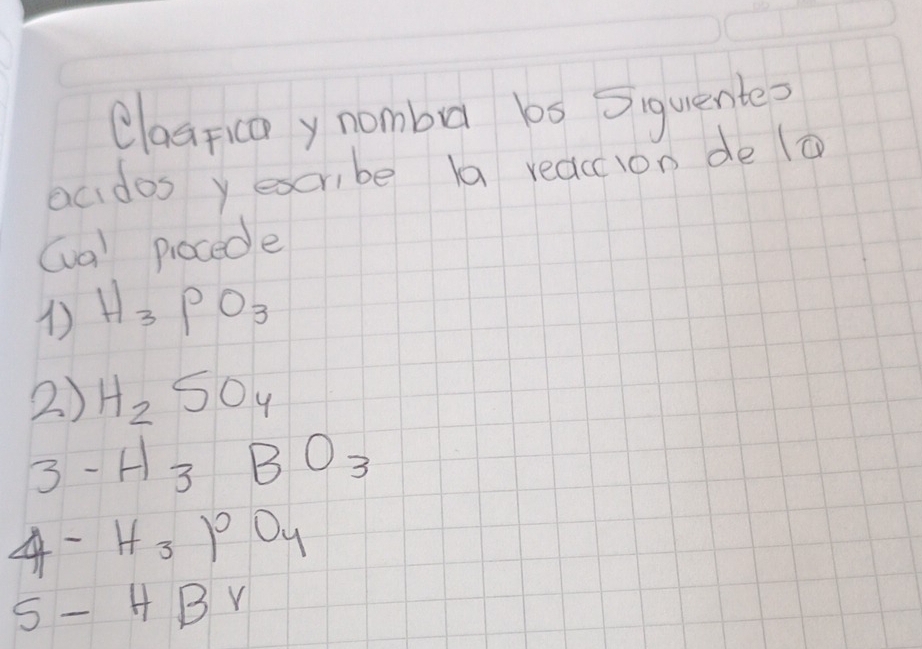 Clasifica y nombra los Siguientes
acidos y escribe la reaccion de la
Cual procede
1) H₃PO₃
2) H₂SO₄
3 - H₃BO₃
4 - H₃PO₄
5 - HBr